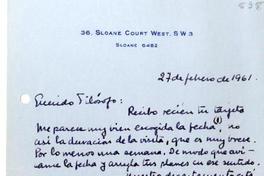 36, SLOANE COURT WEST, S.W.3
SLOANE 6482
27 de febrero de 1961.
Querido Filósofo:
Recibo recién tu tarjeta
Me parece muy bien escogida la fecha, no
así la duración de la visita, que es muy bre-
ve. Por lo menos una semana. De modo que aví-
same la fecha y arregla tus planes en ese sentido.